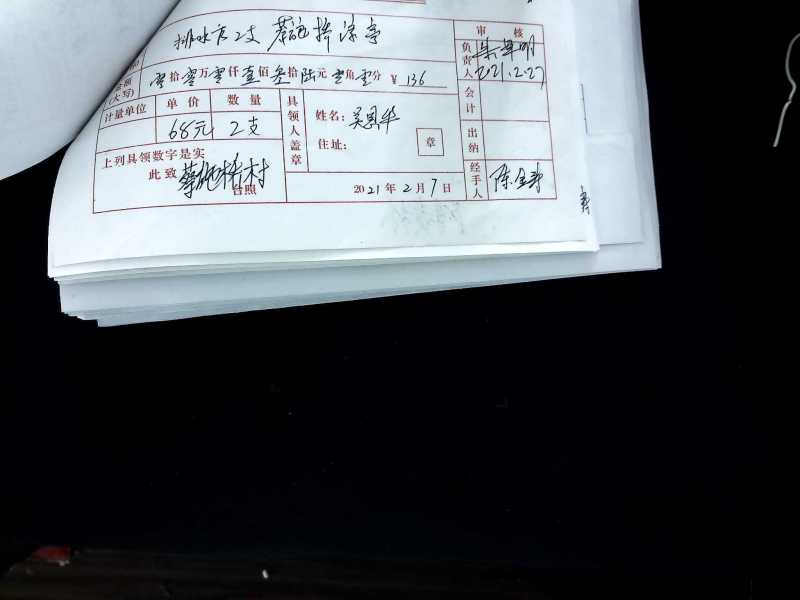 排水管2支 蔡施桥凉亭
金额
(大写)
零拾零万零仟壹佰叁拾陆元零角零分 ¥ 136
计量单位 单价 数量
68元 2支
上列具领数字是实
此致 蔡施桥村
台照
具领人盖章
姓名: 吴恩华
住址:
章
2021年2月7日
审核
负责人
2021.2.27
会计
出纳
经手人